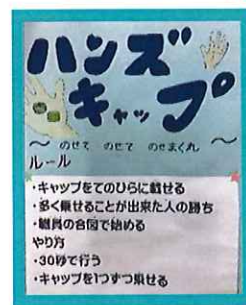 ハンズ
キャップ
～のせて のせて のせまくれ～
ルール
・キャップをてのひらに載せる
・多く乗せることが出来た人の勝ち
・職員の合図で始める
やり方
・30秒で行う
・キャップを1つずつ乗せる